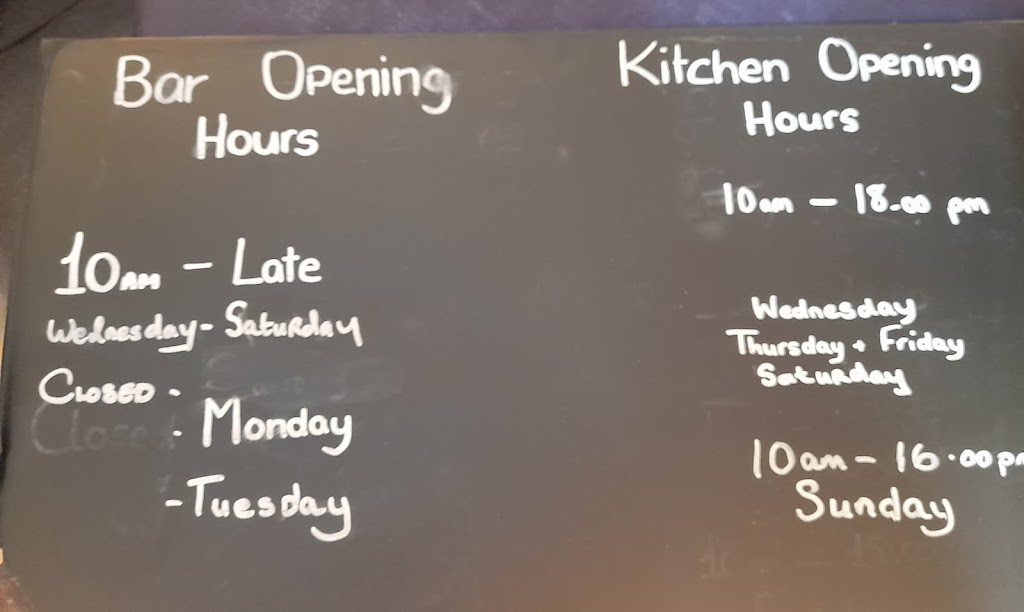 Bar Opening
Hours
10AM - Late
Wednesday - Saturday
CLOSED .
. Monday
- Tuesday
Kitchen Opening
Hours
10am - 18.00 pm
Wednesday
Thursday + Friday
Saturday
10am - 16.00pm
Sunday